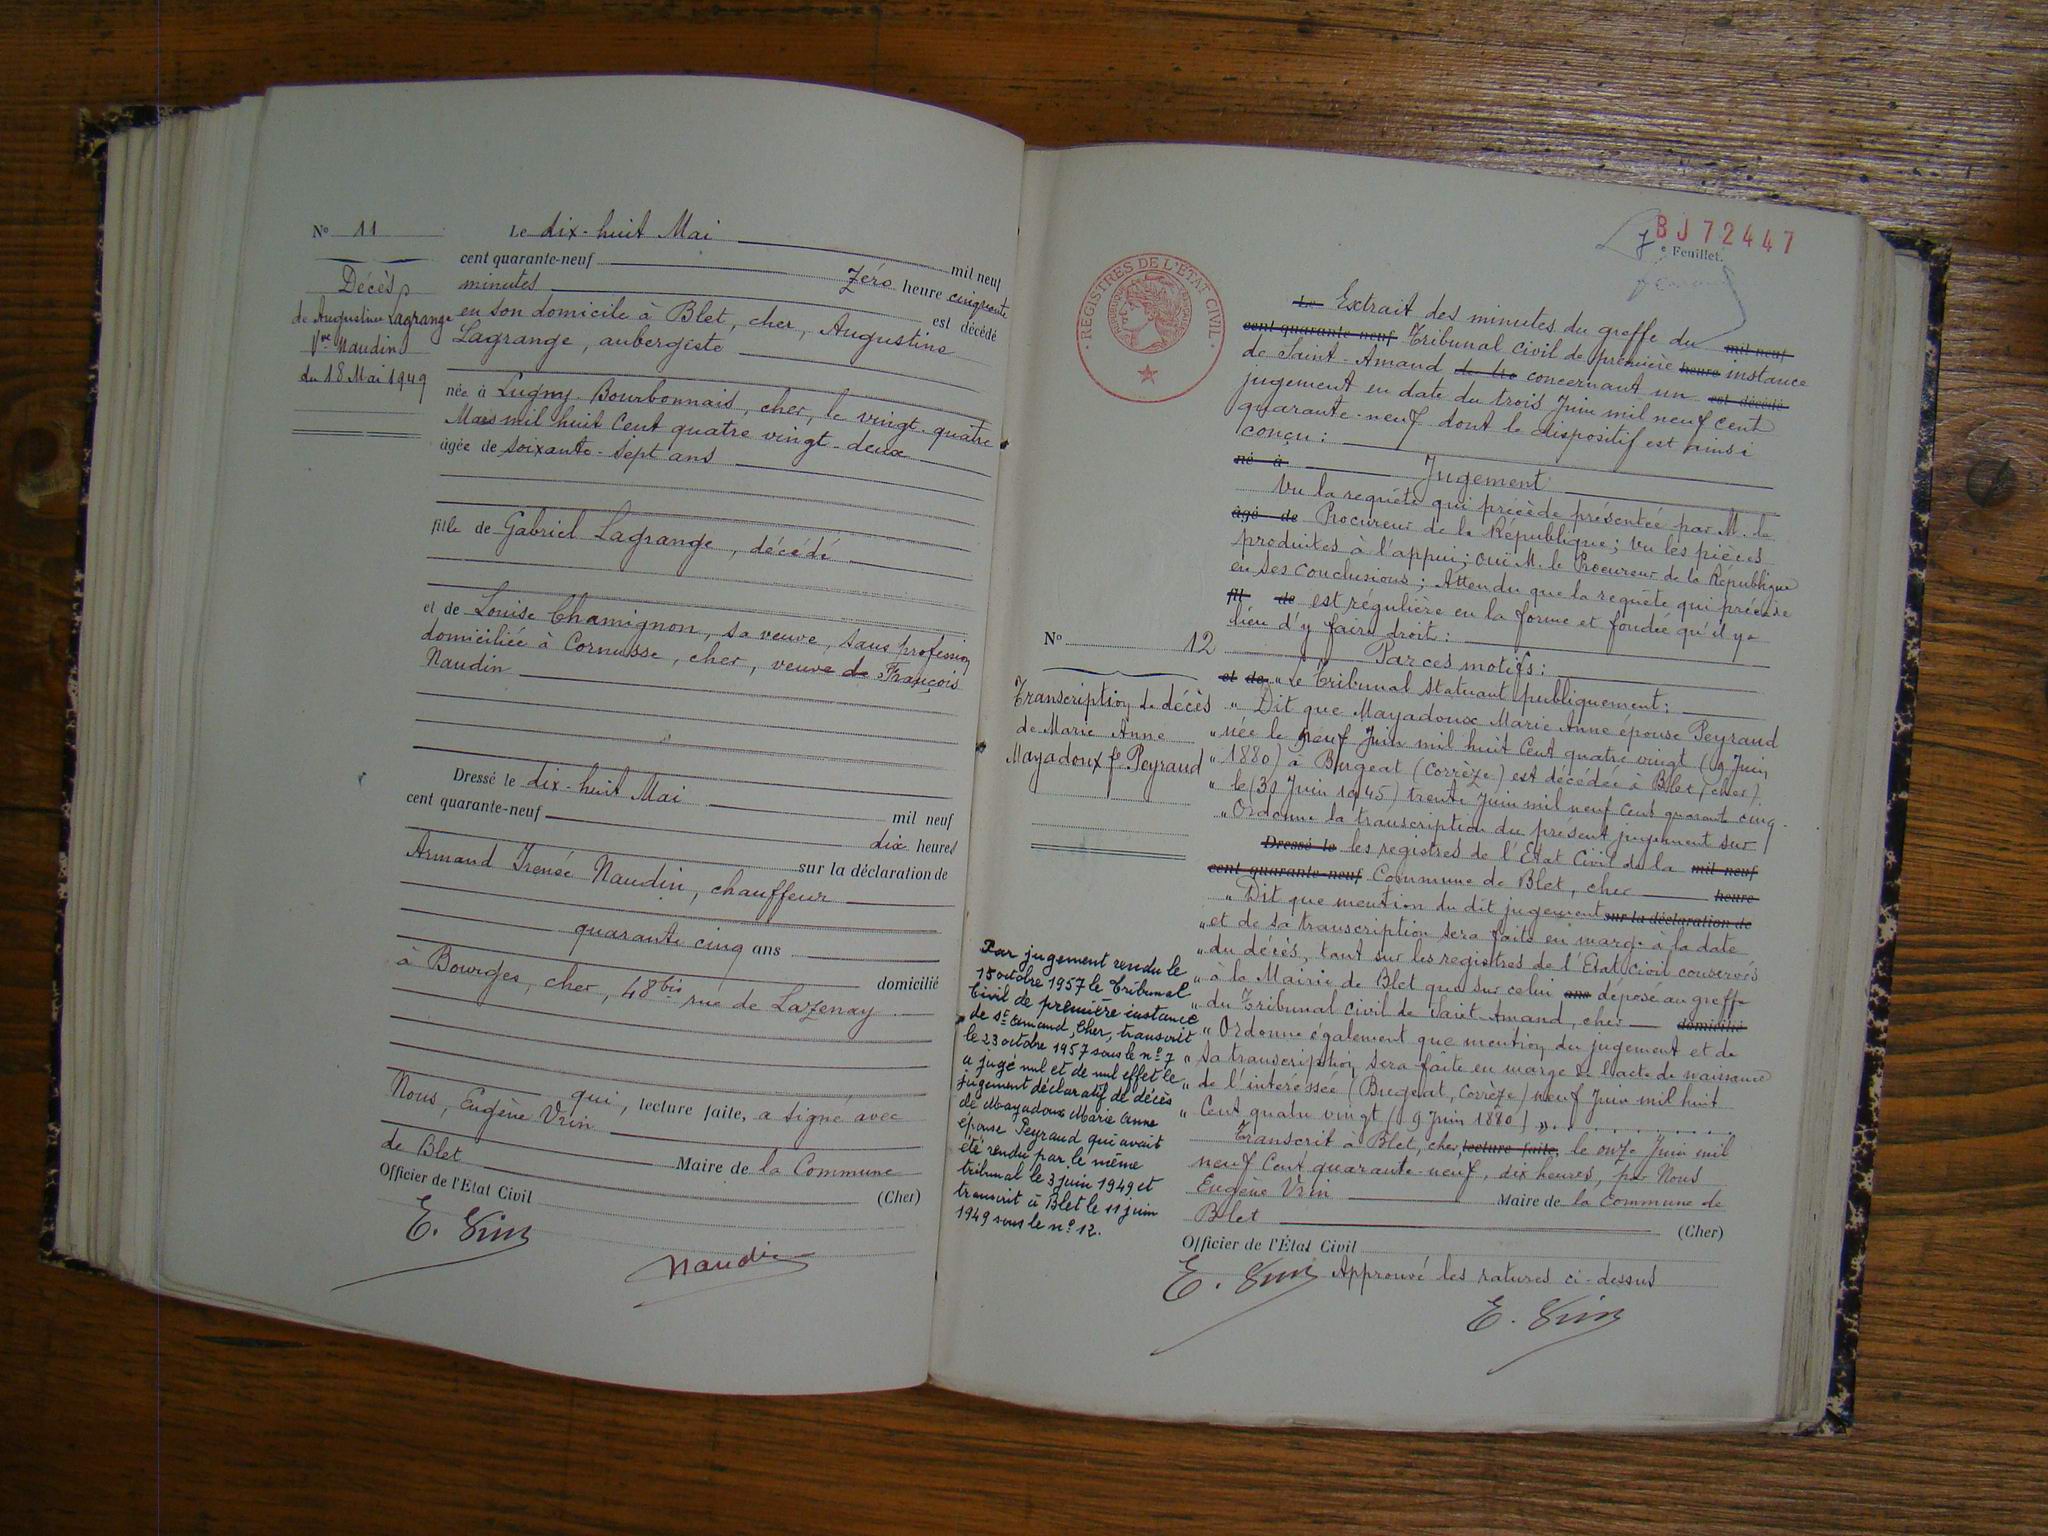 Nº 11
Décès
de Augustine Lagrange
Vve Naudin
du 18 Mai 1949
Le dix-huit Mai mil neuf
cent quarante-neuf Zéro heure cinquante
minutes est décédé
en son domicile à Blet, cher, Augustine
Lagrange, aubergiste
née à Lugny-Bourbonnais, cher, le vingt-quatre
Mars mil huit Cent quatre vingt-deux
âgée de soixante-sept ans
fille de Gabriel Lagrange, décédé
et de Louise Chamignon, sa veuve, sans profession
domiciliée à Cornusse, cher, veuve de François
Naudin
Dressé le dix-huit Mai mil neuf
cent quarante-neuf dix heures
sur la déclaration de
Armand Irenée Naudin, chauffeur
quarante cinq ans
domicilié
à Bourges, cher, 48bis rue de Lazenay
qui, lecture faite, a signé avec
Nous, Eugène Vrin
Maire de la Commune
de Blet (Cher)
Officier de l'État Civil
E. Vrin
Naudin
BJ72447
7e Feuillet.
REGISTRES DE L'ÉTAT CIVIL
Le Extrait des minutes du greffe du mil neuf
cent quarante-neuf Tribunal civil de première heure instance
de Saint-Amand concernant un est décédé
jugement en date du trois Juin mil neuf cent
quarante-neuf dont le dispositif est ainsi
conçu :
né à Jugement
Vu la requête qui précède présentée par M. le
âgé de Procureur de la République ; Vu les pièces
produites à l'appui ; ouï M. le Procureur de la République
en ses conclusions ; Attendu que la requête qui précède
fil de est régulière en la forme et fondée qu'il y a
lieu d'y faire droit :
Par ces motifs :
et de " Le Tribunal statuant publiquement :
" Dit que Mayadoux Marie Anne épouse Peyraud
" née le neuf Juin mil huit Cent quatre vingt (9 Juin
" 1880) à Bugeat (Corrèze) est décédée à Blet, (cher)
" le (30 Juin 1945) trente Juin mil neuf cent quarante cinq.
" Ordonne la transcription du présent jugement sur
Dressé le les registres de l'Etat Civil de la mil neuf
cent quarante-neuf Commune de Blet, cher heure
" Dit que mention du dit jugement sur la déclaration de
" et de sa transcription sera faite en marge à la date
" du décès, tant sur les registres de l'Etat Civil conservés
" à la Mairie de Blet que sur celui ans déposé au greffe
" du Tribunal civil de Saint-Amand, cher domicilié
" Ordonne également que mention du jugement et de
" sa transcription sera faite en marge de l'acte de naissance
" de l'intéressée (Bugeat, Corrèze) neuf Juin mil huit
" Cent quatre vingt (9 Juin 1880) ".
Transcrit à Blet, cher, lecture faite, le onze Juin mil
neuf Cent quarante-neuf, dix heures, par Nous
Eugène Vrin Maire de la Commune de
Blet (Cher)
Officier de l'État Civil
E. Vrin Approuvé les ratures ci-dessus
E. Vrin
Nº 12
Transcription de décès
de Marie Anne
Mayadoux fe Peyraud
Par jugement rendu le
15 octobre 1957 le Tribunal
Civil de première instance
de St Amand, Cher, transcrit
le 23 octobre 1957 sous le nº 7
a jugé nul et de nul effet le
jugement déclaratif de décès
de Mayadoux Marie Anne
épouse Peyraud qui avait
été rendu par le même
tribunal le 3 juin 1949 et
transcrit à Blet le 11 juin
1949 sous le nº 12.